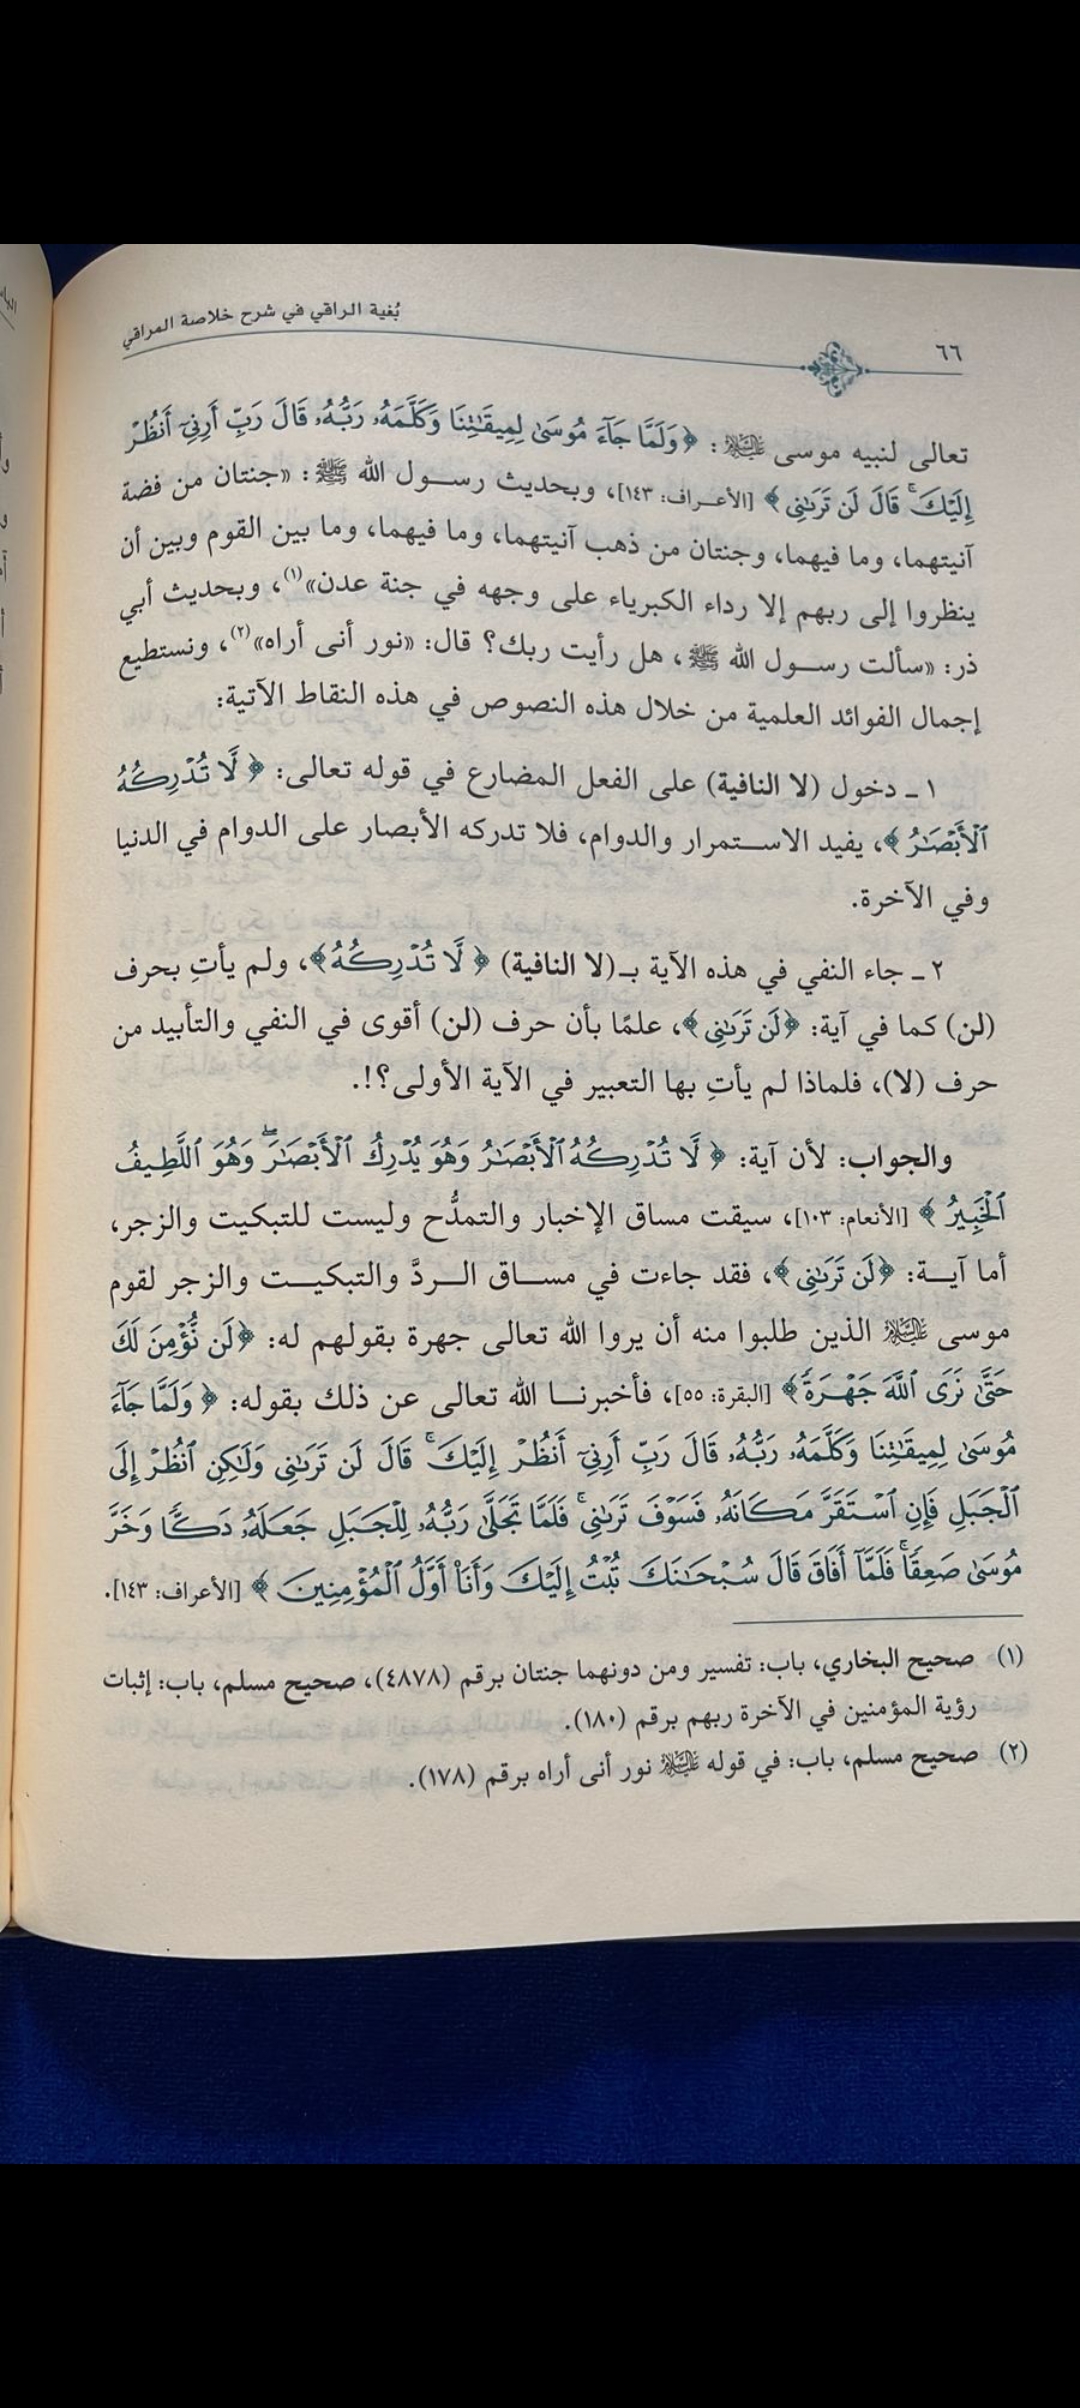 بُغية الراقي في شرح خلاصة المراقي
٦٦
تعالى لنبيه موسى عليه السلام: ﴿وَلَمَّا جَآءَ مُوسَىٰ لِمِيقَـٰتِنَا وَكَلَّمَهُۥ رَبُّهُۥ قَالَ رَبِّ أَرِنِىٓ أَنظُرْ
إِلَيْكَ ۚ قَالَ لَن تَرَىٰنِى﴾ [الأعـراف: ١٤٣]، وبحديث رسـول الله ﷺ: «جنتان من فضة
آنيتهما، وما فيهما، وجنتان من ذهب آنيتهما، وما فيهما، وما بين القوم وبين أن
ينظروا إلى ربهم إلا رداء الكبرياء على وجهه في جنة عدن»(١)، وبحديث أبي
ذر: «سألت رسـول الله ﷺ، هل رأيت ربك؟ قال: «نور أنى أراه»(٢)، ونستطيع
إجمال الفوائد العلمية من خلال هذه النصوص في هذه النقاط الآتية:
١ ـ دخول (لا النافية) على الفعل المضارع في قوله تعالى: ﴿لَّا تُدْرِكُهُ
ٱلْأَبْصَـٰرُ﴾، يفيد الاسـتمرار والدوام، فلا تدركه الأبصار على الدوام في الدنيا
وفي الآخرة.
٢ ـ جاء النفي في هذه الآية بـ(لا النافية) ﴿لَّا تُدْرِكُهُ﴾، ولم يأتِ بحرف
(لن) كما في آية: ﴿لَن تَرَىٰنِى﴾، علمًا بأن حرف (لن) أقوى في النفي والتأبيد من
حرف (لا)، فلماذا لم يأتِ بها التعبير في الآية الأولى؟!.
والجواب: لأن آية: ﴿لَّا تُدْرِكُهُ ٱلْأَبْصَـٰرُ وَهُوَ يُدْرِكُ ٱلْأَبْصَـٰرَ ۖ وَهُوَ ٱللَّطِيفُ
ٱلْخَبِيرُ﴾ [الأنعام: ١٠٣]، سيقت مساق الإخبار والتمدُّح وليست للتبكيت والزجر،
أما آيـة: ﴿لَن تَرَىٰنِى﴾، فقد جاءت في مسـاق الـردَّ والتبكيـت والزجر لقوم
موسى عليه السلام الذين طلبوا منه أن يروا الله تعالى جهرة بقولهم له: ﴿لَن نُّؤْمِنَ لَكَ
حَتَّىٰ نَرَى ٱللَّهَ جَهْرَةً﴾ [البقرة: ٥٥]، فأخبرنـا الله تعالى عن ذلك بقوله: ﴿وَلَمَّا جَآءَ
مُوسَىٰ لِمِيقَـٰتِنَا وَكَلَّمَهُۥ رَبُّهُۥ قَالَ رَبِّ أَرِنِىٓ أَنظُرْ إِلَيْكَ ۚ قَالَ لَن تَرَىٰنِى وَلَـٰكِنِ ٱنظُرْ إِلَى
ٱلْجَبَلِ فَإِنِ ٱسْتَقَرَّ مَكَانَهُۥ فَسَوْفَ تَرَىٰنِى ۚ فَلَمَّا تَجَلَّىٰ رَبُّهُۥ لِلْجَبَلِ جَعَلَهُۥ دَكًّا وَخَرَّ
مُوسَىٰ صَعِقًا ۚ فَلَمَّآ أَفَاقَ قَالَ سُبْحَـٰنَكَ تُبْتُ إِلَيْكَ وَأَنَا۠ أَوَّلُ ٱلْمُؤْمِنِينَ﴾ [الأعراف: ١٤٣].
(١) صحيح البخاري، باب: تفسير ومن دونهما جنتان برقم (٤٨٧٨)، صحيح مسلم، باب: إثبات
رؤية المؤمنين في الآخرة ربهم برقم (١٨٠).
(٢) صحيح مسلم، باب: في قوله عليه السلام نور أنى أراه برقم (١٧٨).